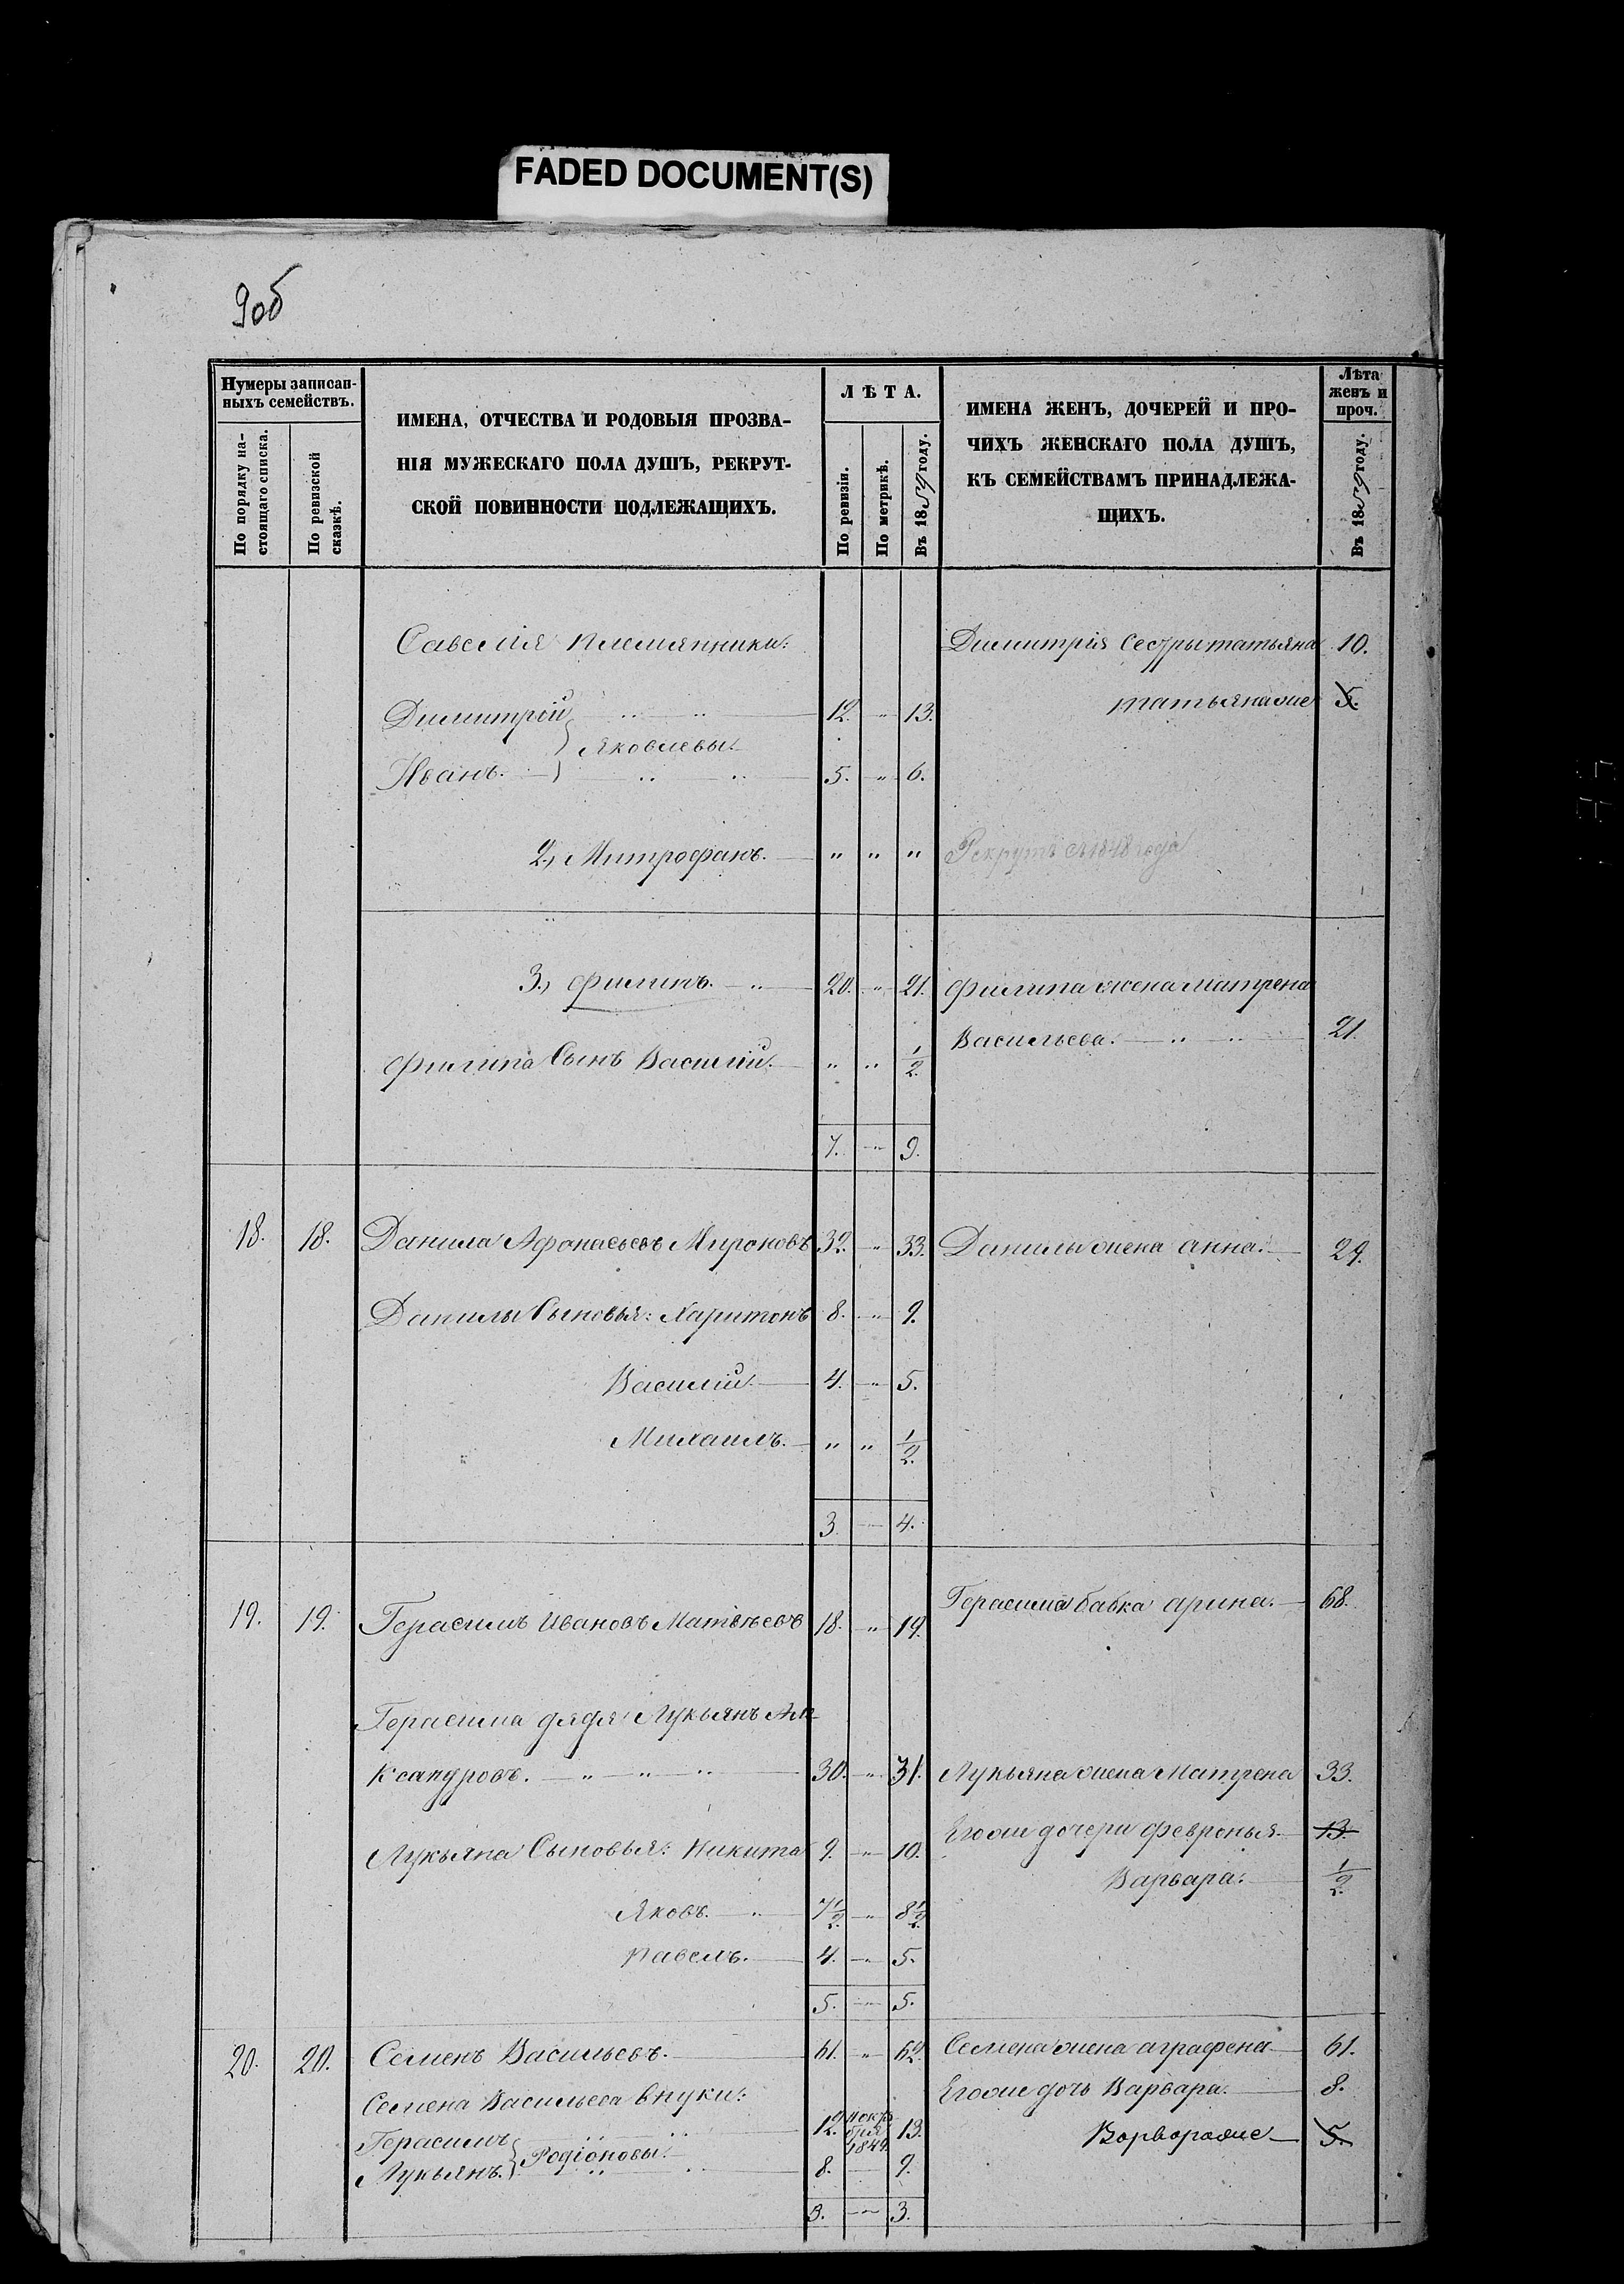 FADED DOCUMENT(S)
9об
Нумеры записан-
ныхъ семействъ.
По порядку на-
стоящаго списка.
По ревизской
сказкѣ.
ИМЕНА, ОТЧЕСТВА И РОДОВЫЯ ПРОЗВА-
НІЯ МУЖЕСКАГО ПОЛА ДУШЪ, РЕКРУТ-
СКОЙ ПОВИННОСТИ ПОДЛЕЖАЩИХЪ.
ЛѢТА.
По ревизіи.
По метрикѣ.
Въ 1859 году.
ИМЕНА ЖЕНЪ, ДОЧЕРЕЙ И ПРО-
ЧИХЪ ЖЕНСКАГО ПОЛА ДУШЪ,
КЪ СЕМЕЙСТВАМЪ ПРИНАДЛЕЖА-
ЩИХЪ.
Лѣта
женъ и
проч.
Въ 1859 году.
Савелія племянники: Димитрія Сестры татьяна 10.
татьяна же 5.
Димитрій 12. " 13.
Яковлевы.
Иванъ. 5. " 6.
2, Митрофанъ. " " " Рекрутъ съ 1848 года
3, филипъ. 20. " 21. филипа жена матрена
Васильева. 21.
филипа Сынъ Василій. " " 1/2.
7. " 9.
18. 18. Данила Афонасьевъ Мироновъ 32. " 33. Данилы жена анна. 29.
Данилы Сыновья: Харитонъ 8. " 9.
Василій. 4. " 5.
Михаилъ. " " 1/2.
3. 4.
19. 19. Герасимъ Ивановъ Матвѣевъ 18. " 19. Герасима бабка арина. 68.
Герасима дядя Лукьянъ Ал-
ксандровъ. 30. " 31. Лукьяна жена Матрена 33.
Его же дочери февронья. 13.
Лукьяна Сыновья: Никита 9. " 10.
Варвара. 1/2.
Яковъ. 7 1/2. " 8 1/2.
павелъ. 4. " 5.
5. " 5.
20. 20. Семенъ Васильевъ. 61. " 62. Семена жена аграфена 61.
Семена Васильева внуки: Его же дочь Варвара. 8.
Герасимъ 12. 13. Ворвора же 5.
Родіоновы.
Лукьянъ. 8. 9.
3. " 3.